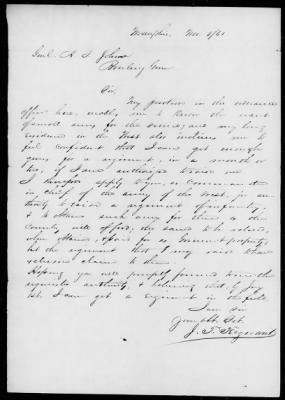 Memphis, Nov 1/61
Genl. A S Johnston
Bowling Green
Sir
My position in the ordnance
office here, enables me to know the want
of small arms for the service, and my long
residence in the West also inclines me to
feel confident that I can get enough
guns for a regiment, in a month or
two, if I was authorized to use
I therefore apply to you, as Commander
in chief of the army of the West, for au-
thority to raise a regiment of infantry,
& to obtain such arms for them as the
County will afford, the same to be valued,
when obtained, & paid for as Government property,
but the regiment that I may raise to have
exclusive claim to them.
Hoping you will promptly forward me the
requisite authority, & believing that by Jany
1st, I can get a regiment in the field.
I am Sir
Your Obt. Svt.
J. T. Trezevant